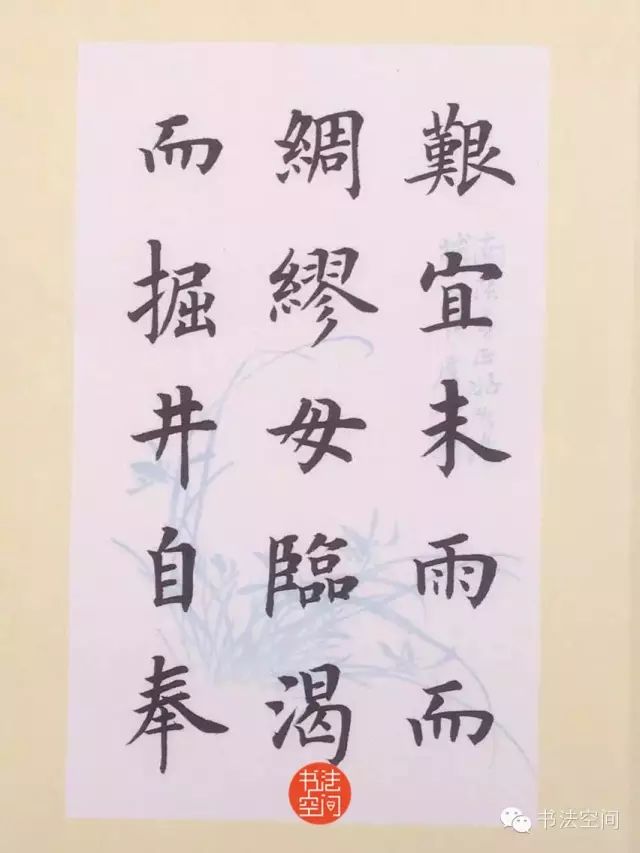 艱宜未雨而
綢繆毋臨渴
而掘井自奉
书法空间
书法空间